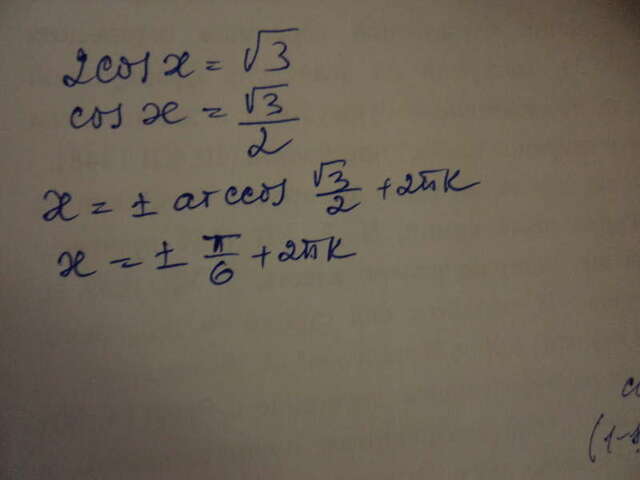 2cos x = √3
cos x = √3/2
x = ± arccos √3/2 + 2πk
x = ± π/6 + 2πk
(1-